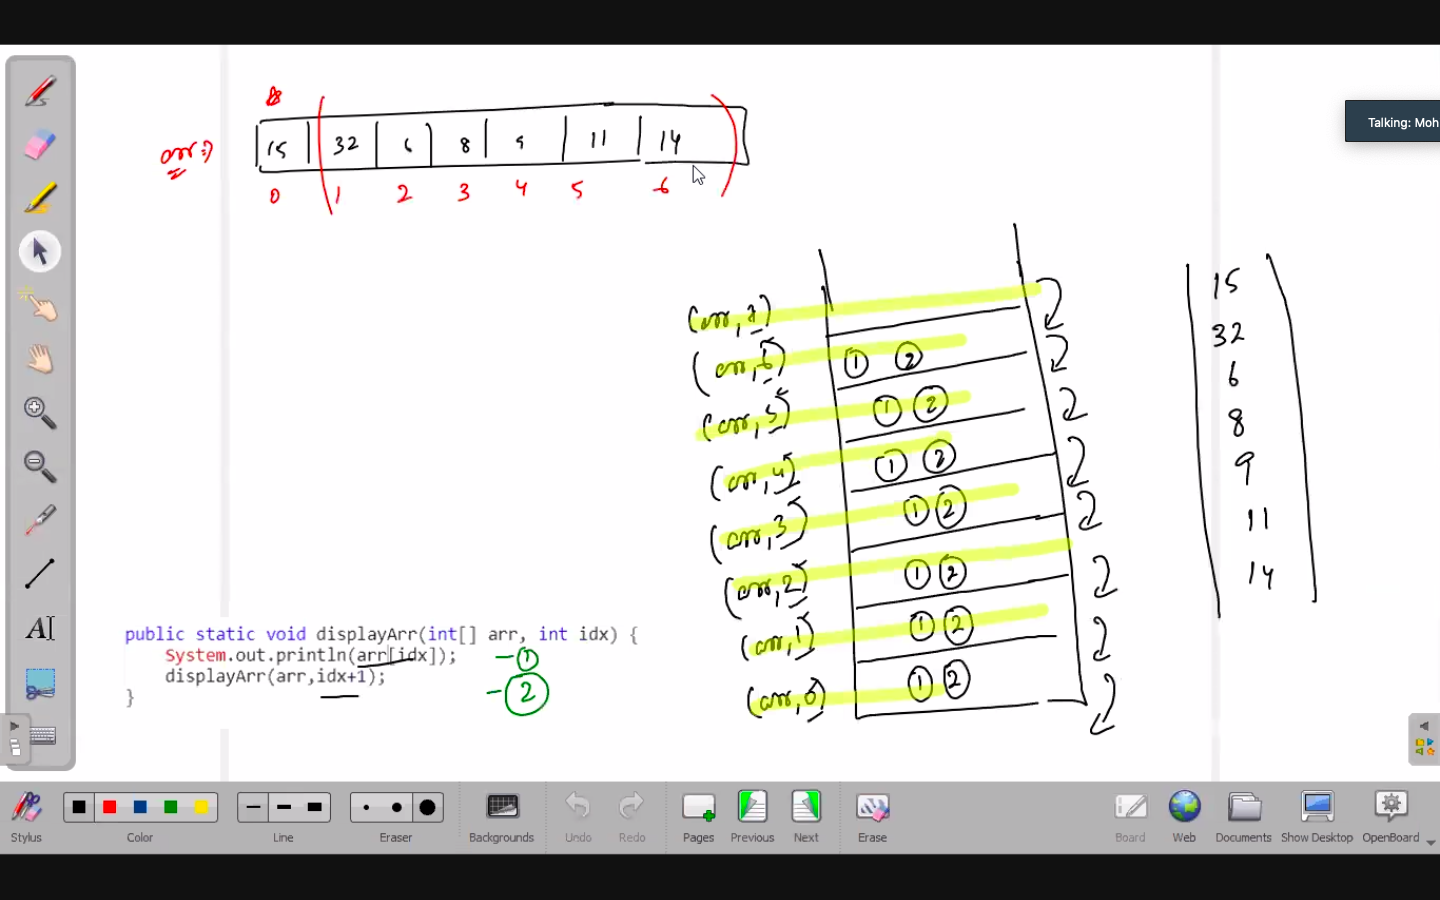 Talking: Moh
arr:→
15 32 6 8 9 11 14
0 1 2 3 4 5 6
(arr, 7)
(arr, 6) 1 2
(arr, 5) 1 2
(arr, 4) 1 2
(arr, 3) 1 2
(arr, 2) 1 2
(arr, 1) 1 2
(arr, 0) 1 2
15
32
6
8
9
11
14
public static void displayArr(int[] arr, int idx) {
System.out.println(arr[idx]); - 1
displayArr(arr,idx+1); - 2
}
AI
Stylus Color Line Eraser Backgrounds Undo Redo Pages Previous Next Erase Board Web Documents Show Desktop OpenBoard